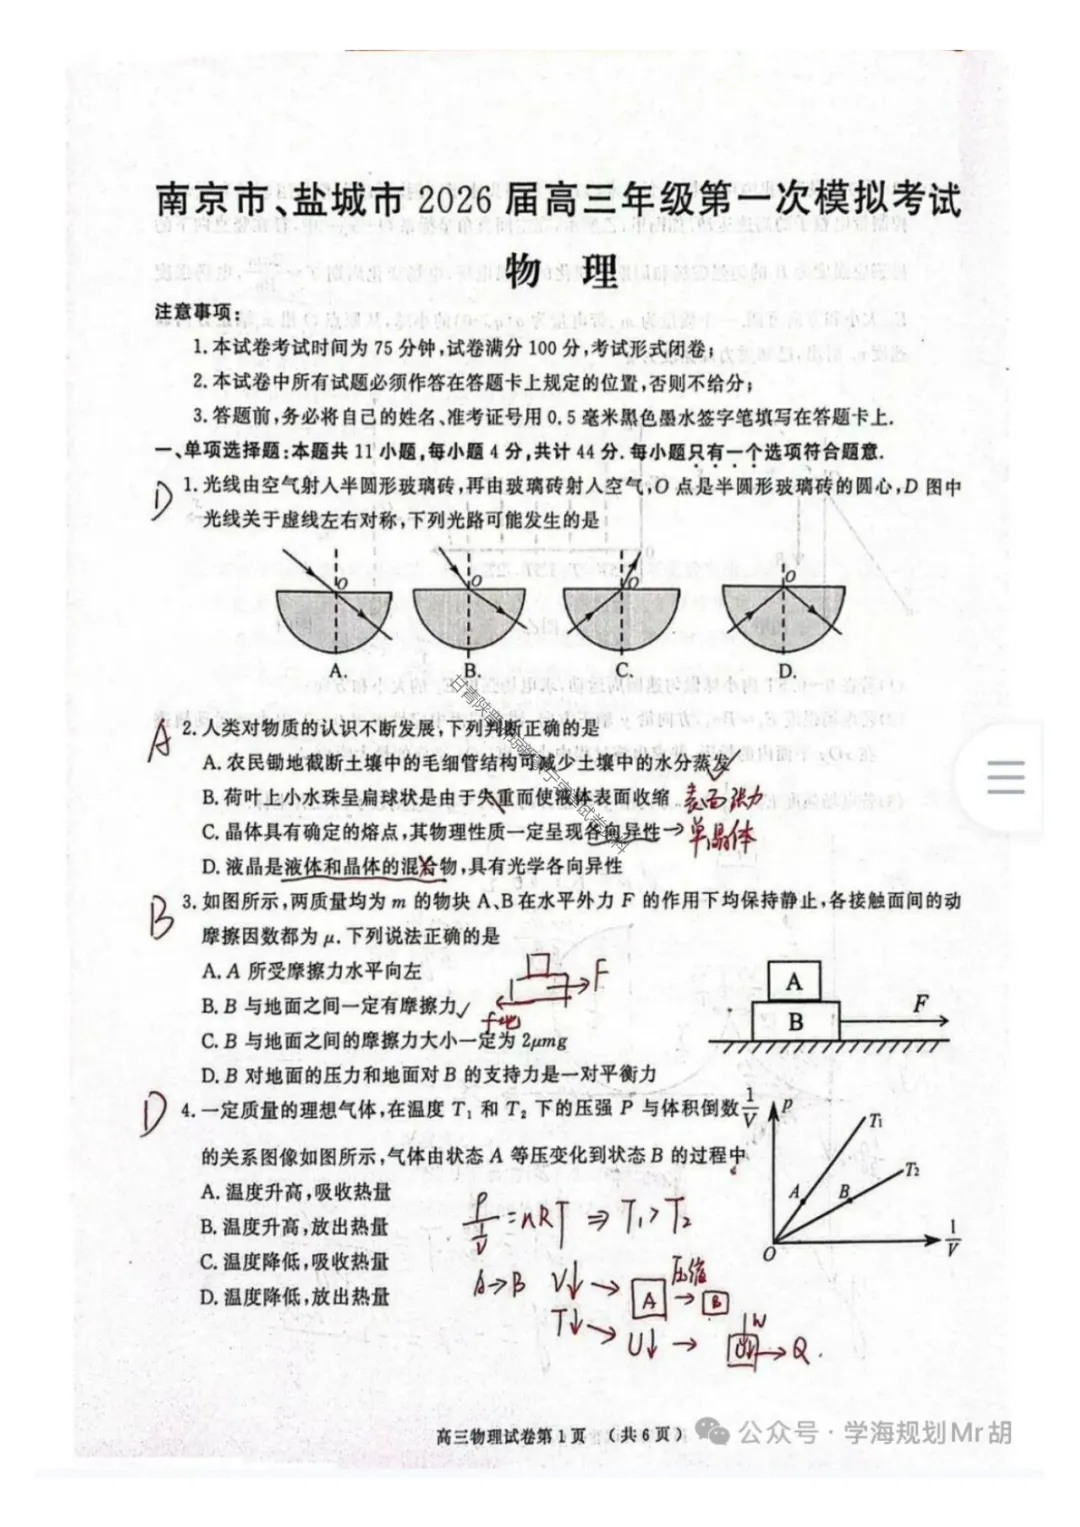 南京市、盐城市 2026 届高三年级第一次模拟考试
物 理
注意事项:
1.本试卷考试时间为 75 分钟,试卷满分 100 分,考试形式闭卷;
2.本试卷中所有试题必须作答在答题卡上规定的位置,否则不给分;
3.答题前,务必将自己的姓名、准考证号用 0.5 毫米黑色墨水签字笔填写在答题卡上.
一、单项选择题:本题共 11 小题,每小题 4 分,共计 44 分.每小题只有一个选项符合题意.
D 1.光线由空气射入半圆形玻璃砖,再由玻璃砖射入空气,O 点是半圆形玻璃砖的圆心,D 图中
光线关于虚线左右对称,下列光路可能发生的是
O O O O
A. B. C. D.
A 2.人类对物质的认识不断发展,下列判断正确的是
A.农民锄地截断土壤中的毛细管结构可减少土壤中的水分蒸发 ✓
B.荷叶上小水珠呈扁球状是由于失重而使液体表面收缩 表面张力
C.晶体具有确定的熔点,其物理性质一定呈现各向异性→单晶体
D.液晶是液体和晶体的混合物,具有光学各向异性
B 3.如图所示,两质量均为 m 的物块 A、B 在水平外力 F 的作用下均保持静止,各接触面间的动
摩擦因数都为 μ.下列说法正确的是
A.A 所受摩擦力水平向左
B.B 与地面之间一定有摩擦力 ✓
C.B 与地面之间的摩擦力大小一定为 2μmg
D.B 对地面的压力和地面对 B 的支持力是一对平衡力
F
f地
A
B
F
D 4.一定质量的理想气体,在温度 T₁ 和 T₂ 下的压强 P 与体积倒数 1/V
的关系图像如图所示,气体由状态 A 等压变化到状态 B 的过程中
A.温度升高,吸收热量
B.温度升高,放出热量
C.温度降低,吸收热量
D.温度降低,放出热量
p
T₁
T₂
A B
O
1/V
P/(1/V) = nRT ⇒ T₁>T₂
A→B V↓ → A 压缩→ B
T↓ → U↓ → W U↓ → Q.
高三物理试卷第 1 页 (共 6 页)
公众号·学海规划Mr胡